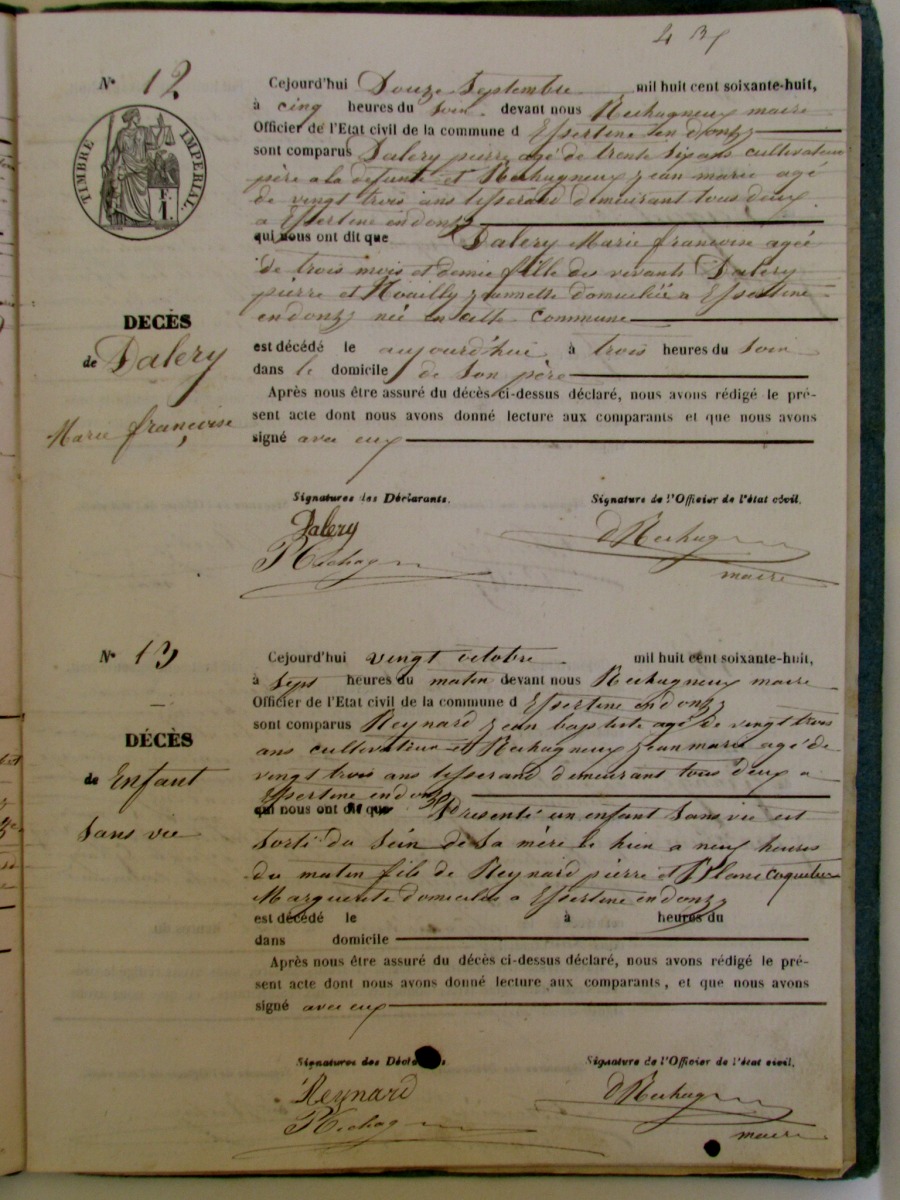 N° 12
TIMBRE IMPERIAL
Cejourd'hui Douze Septembre mil huit cent soixante-huit,
à cinq heures du Soir devant nous Rechagneux maire
Officier de l'Etat civil de la commune d Essertine en donzy
sont comparus Dalery pierre agé de trente six ans cultivateur
père a la defunte et Rechagneux jean marie agé
de vingt trois ans tisserand demeurant tous deux
a Essertine en donzy
qui nous ont dit que Dalery Marie françoise agée
de trois mois et demie fille des vivants Dalery
pierre et Noailly jeannette domiciliés a Essertine
en donzy née en cette commune
est décédé le aujourd'hui à trois heures du Soir
dans le domicile de Son père
Après nous être assuré du décès ci-dessus déclaré, nous avons rédigé le pré-
sent acte dont nous avons donné lecture aux comparants et que nous avons
signé avec eux
DECÈS
de Dalery
Marie françoise
Signatures des Déclarants. Signature de l'Officier de l'état civil.
Dalery
maire
N° 13
Cejourd'hui vingt octobre mil huit cent soixante-huit,
à Sept heures du matin devant nous Rechagneux maire
Officier de l'Etat civil de la commune d Essertine en donzy
sont comparus Reynard jean baptiste agé de vingt trois
ans cultivateur et Rechagneux jean marie agé de
vingt trois ans tisserand demeurant tous deux a
Essertine en donzy
qui nous ont dit que Presenté un enfant Sans vie est
Sorti du Sein de Sa mère le hier a neuf heures
du matin fils de Reynard pierre et Blanc coquelu
Marguerite domiciliés a Essertine en donzy
est décédé le à heures du
dans domicile
Après nous être assuré du décès ci-dessus déclaré, nous avons rédigé le pré-
sent acte dont nous avons donné lecture aux comparants, et que nous avons
signé avec eux
DÉCÈS
de Enfant
Sans vie
Signatures des Signature de l'Officier de l'état civil.
Reynard
maire